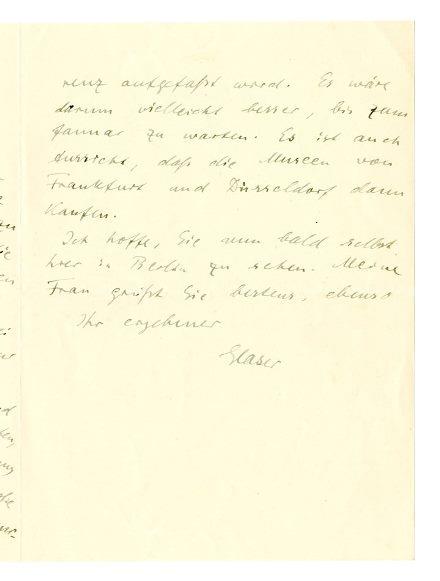 renz aufgefaßt wird. Es wäre
darum vielleicht besser, bis zum
Januar zu warten. Es ist auch
Aussicht, daß die Museen von
Frankfurt und Düsseldorf dann
kaufen.
Ich hoffe, Sie nun bald selbst
hier in Berlin zu sehen. Meine
Frau grüßt Sie bestens, ebenso
Ihr ergebener
Glaser